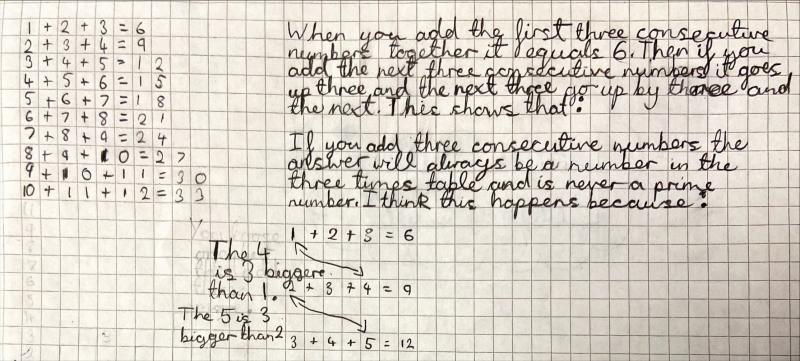 1 + 2 + 3 = 6
2 + 3 + 4 = 9
3 + 4 + 5 = 12
4 + 5 + 6 = 15
5 + 6 + 7 = 18
6 + 7 + 8 = 21
7 + 8 + 9 = 24
8 + 9 + 10 = 27
9 + 10 + 11 = 30
10 + 11 + 12 = 33
When you add the first three consecutive
numbers together it equals 6. Then if you
add the next three consecutive numbers it goes
up three and the next three go up by three and
the next. This shows that:
If you add three consecutive numbers the
answer will always be a number in the
three times table and is never a prime
number. I think this happens because:
1 + 2 + 3 = 6
The 4
is 3 biggere
than 1.
2 + 3 + 4 = 9
The 5 is 3
bigger than 2
3 + 4 + 5 = 12